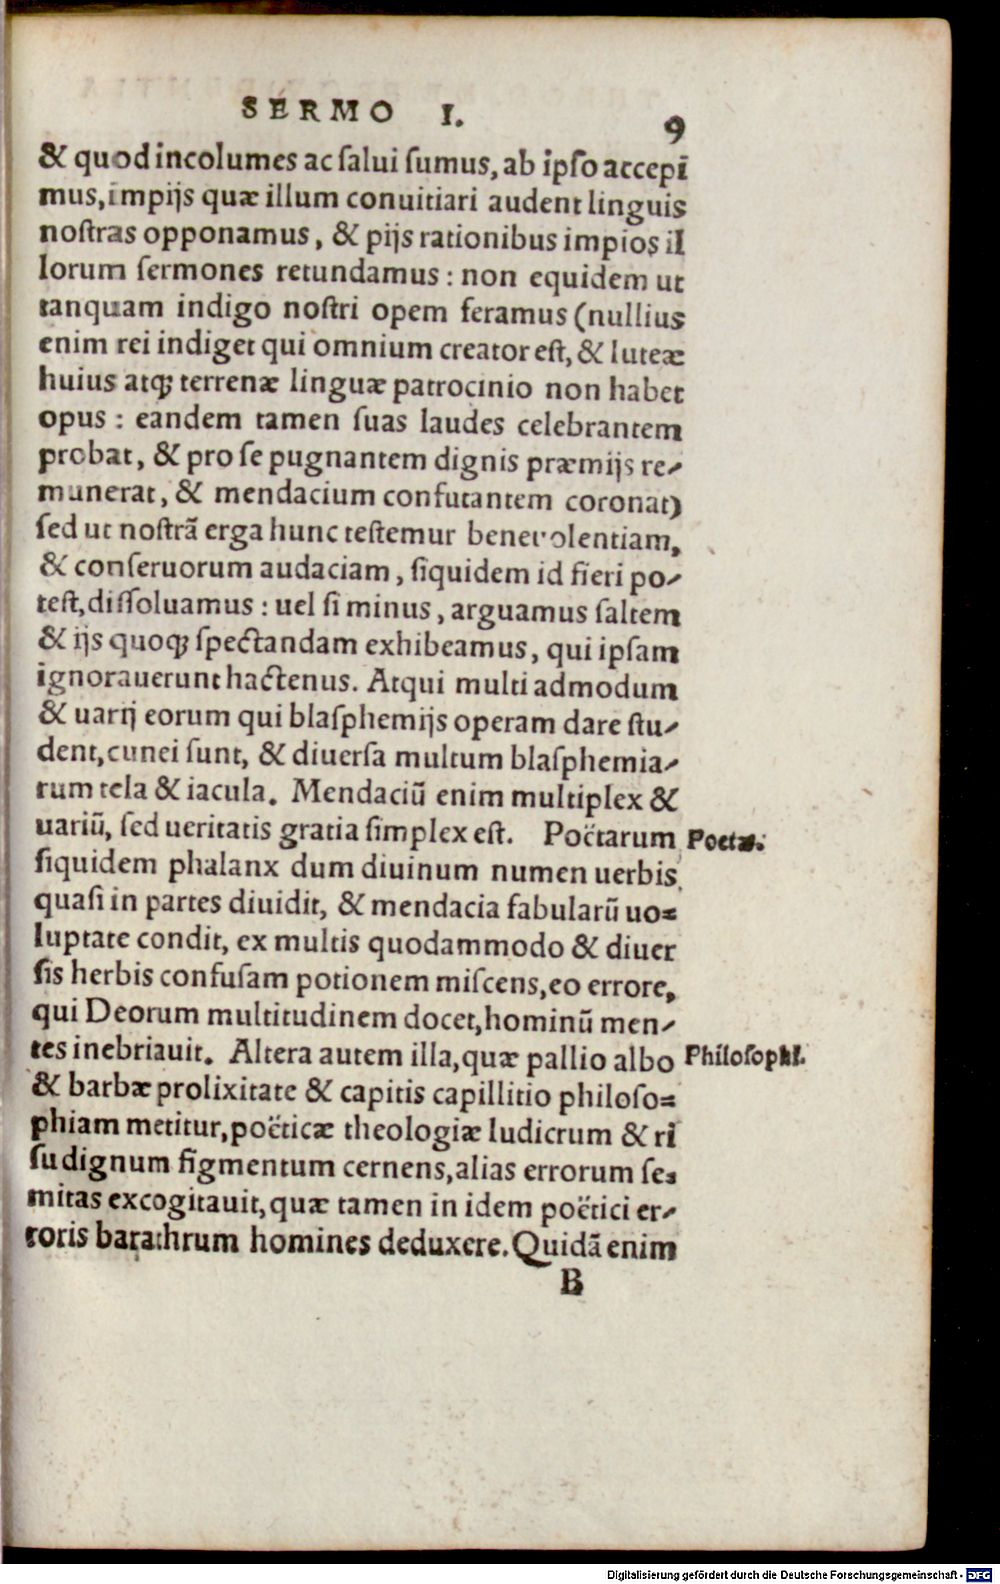 SERMO I. 9
& quod incolumes ac ſalui ſumus, ab ipſo accepi
mus, impijs quæ illum conuitiari audent linguis
noſtras opponamus, & pijs rationibus impios il
lorum ſermones retundamus: non equidem ut
tanquam indigo noſtri opem feramus (nullius
enim rei indiget qui omnium creator eſt, & luteæ
huius atꝗ terrenæ linguæ patrocinio non habet
opus: eandem tamen ſuas laudes celebrantem
probat, & pro ſe pugnantem dignis præmijs re-
munerat, & mendacium confutantem coronat)
ſed ut noſtrã erga hunc teſtemur benevolentiam,
& conſeruorum audaciam, ſiquidem id fieri po-
teſt, diſſoluamus: uel ſi minus, arguamus ſaltem
& ijs quoꝗ ſpectandam exhibeamus, qui ipſam
ignorauerunt hactenus. Atqui multi admodum
& uarij eorum qui blaſphemijs operam dare ſtu-
dent, cunei ſunt, & diuerſa multum blaſphemia-
rum tela & iacula. Mendaciũ enim multiplex &
uariũ, ſed ueritatis gratia ſimplex eſt. Poëtarum Poetæ.
ſiquidem phalanx dum diuinum numen uerbis
quaſi in partes diuidit, & mendacia fabularũ uo=
luptate condit, ex multis quodammodo & diuer
ſis herbis confuſam potionem miſcens, eo errore,
qui Deorum multitudinem docet, hominũ men-
tes inebriauit. Altera autem illa, quæ pallio albo Philoſophi.
& barbæ prolixitate & capitis capillitio philoſo=
phiam metitur, poëticæ theologiæ ludicrum & ri
ſu dignum figmentum cernens, alias errorum ſe=
mitas excogitauit, quæ tamen in idem poëtici er-
roris barathrum homines deduxere. Quidã enim
B
Digitalisierung gefördert durch die Deutsche Forschungsgemeinschaft - DFG